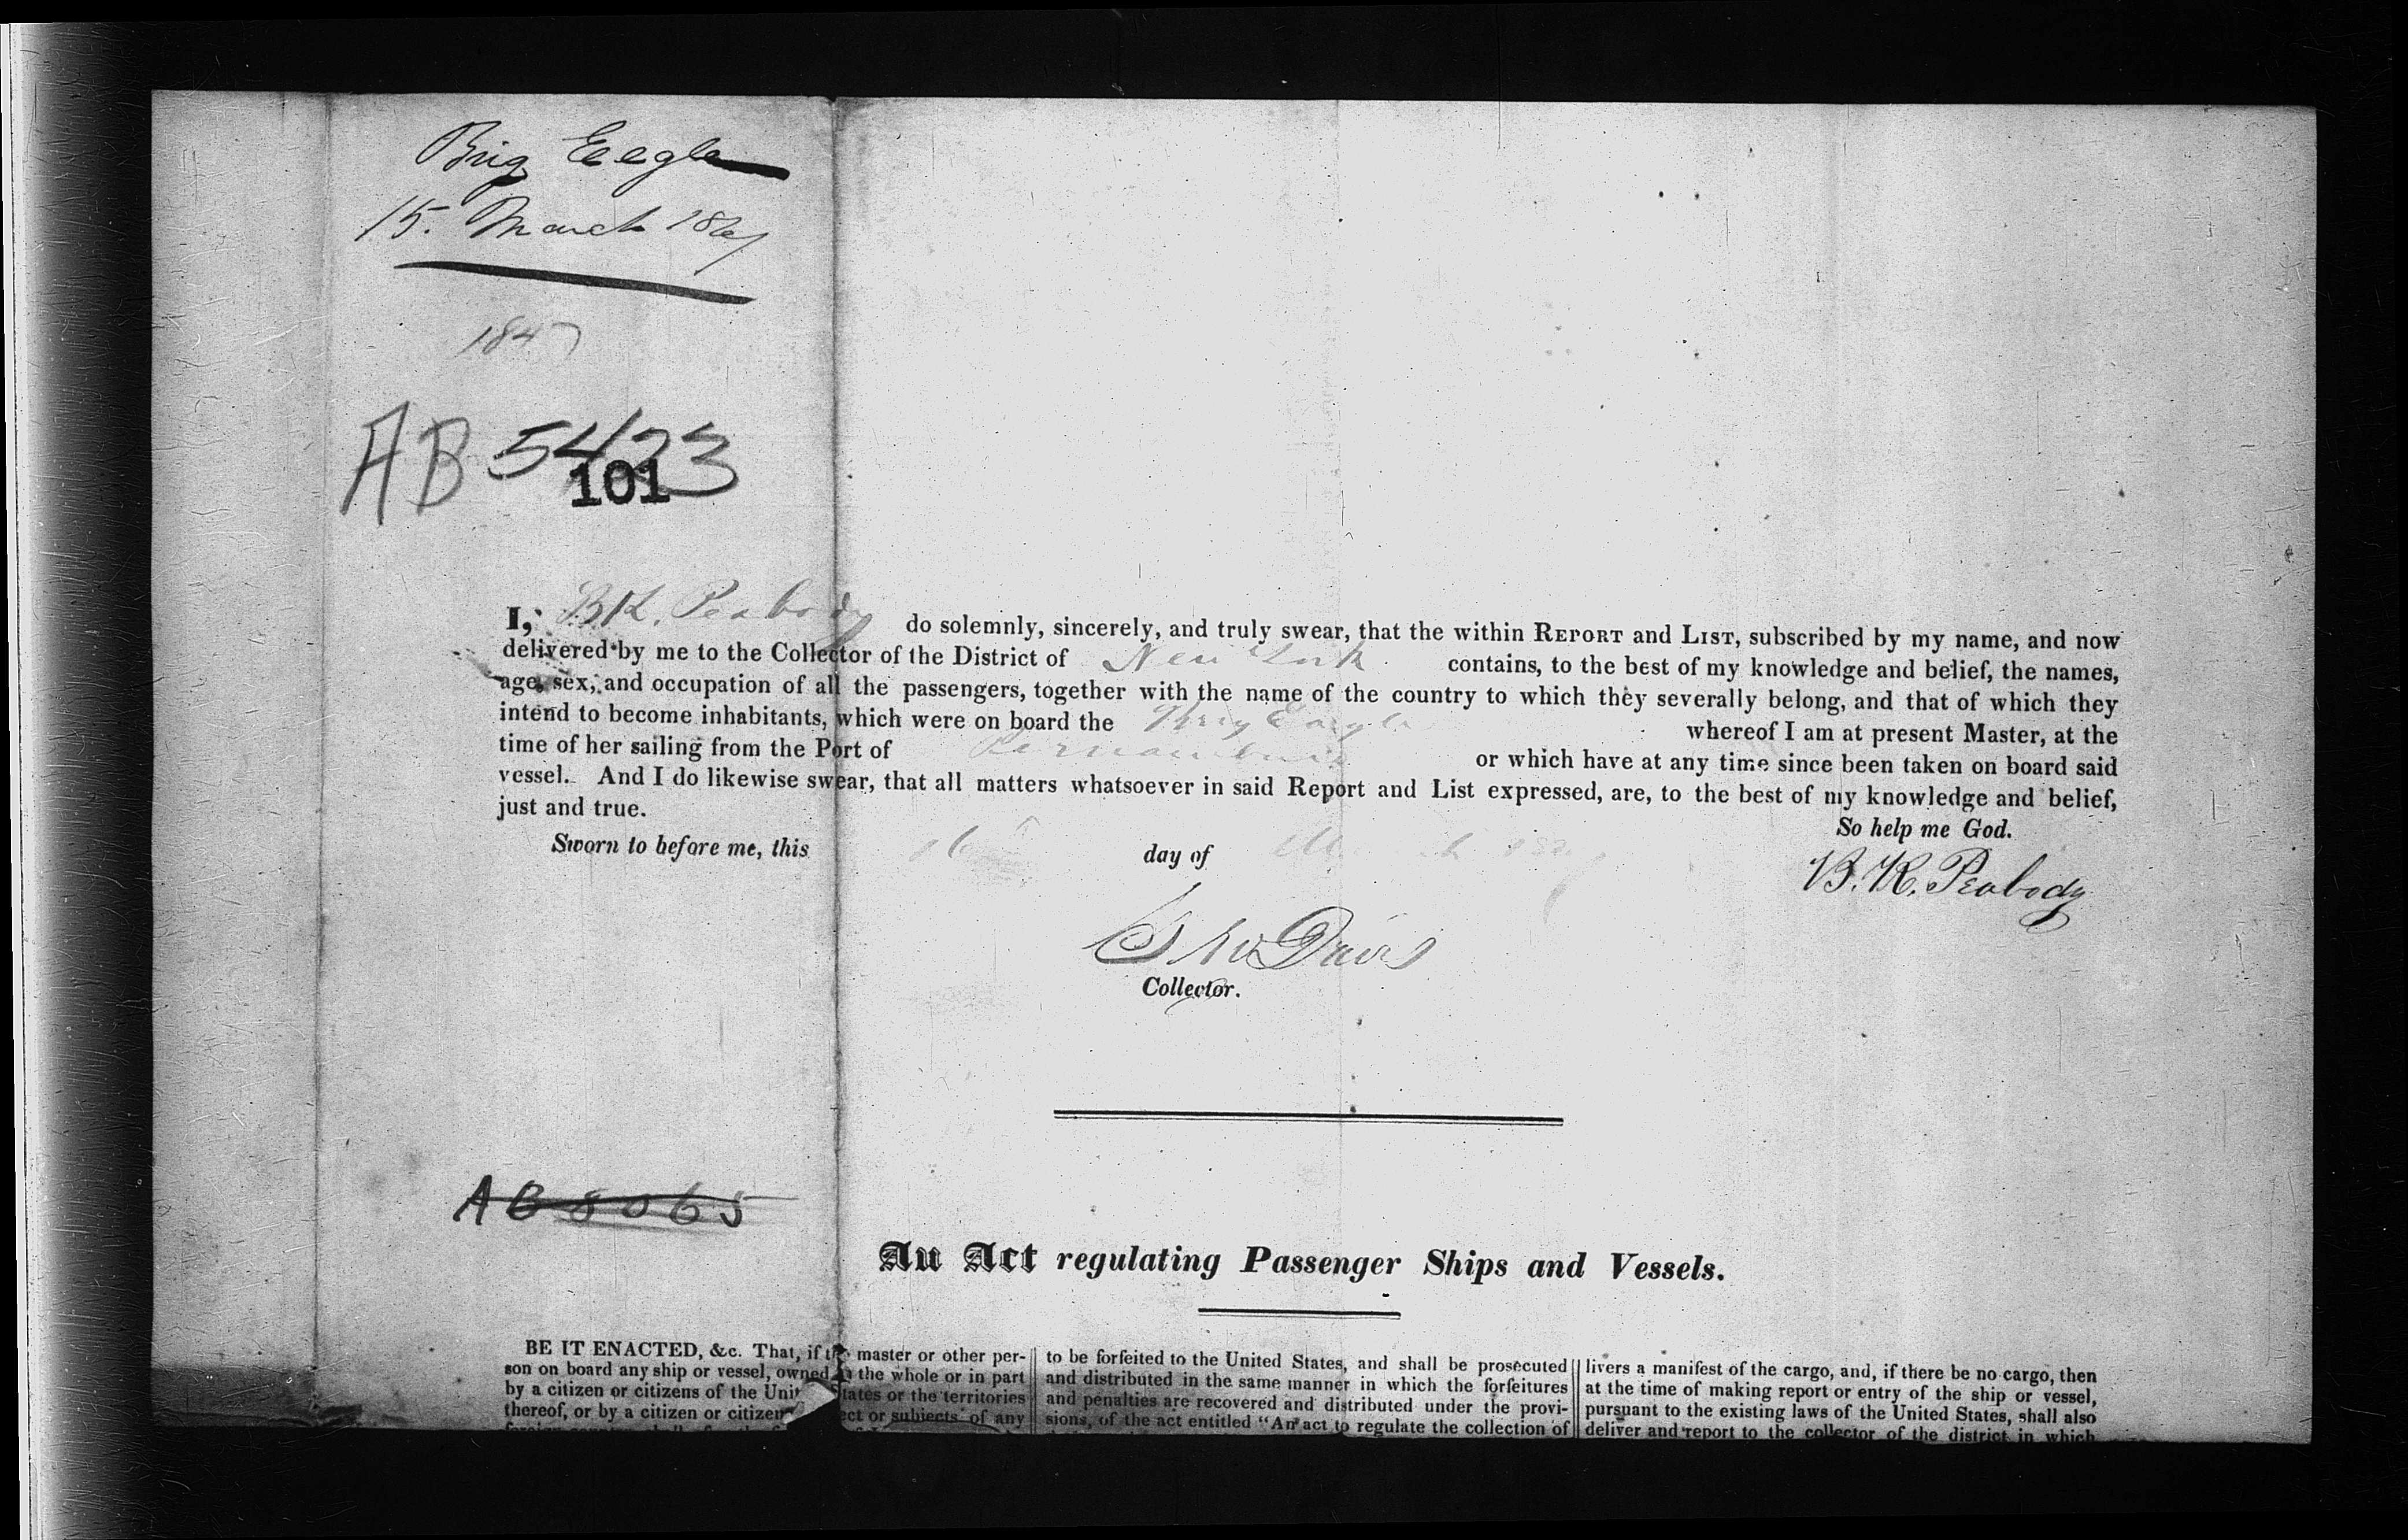 Brig Eeagle
15. March 1847
1847
AB 5423
101
I, B.K. Peabody do solemnly, sincerely, and truly swear, that the within REPORT and LIST, subscribed by my name, and now
delivered by me to the Collector of the District of New York contains, to the best of my knowledge and belief, the names,
age, sex, and occupation of all the passengers, together with the name of the country to which they severally belong, and that of which they
intend to become inhabitants, which were on board the Brig Eagle whereof I am at present Master, at the
time of her sailing from the Port of Pernambuco or which have at any time since been taken on board said
vessel. And I do likewise swear, that all matters whatsoever in said Report and List expressed, are, to the best of my knowledge and belief,
just and true.
So help me God.
Sworn to before me, this 16 day of
B. K. Peabody
Davis
Collector.
AB 8065
An Act regulating Passenger Ships and Vessels.
BE IT ENACTED, &c. That, if the master or other per-
son on board any ship or vessel, owned in the whole or in part
by a citizen or citizens of the United States or the territories
thereof, or by a citizen or citizens ect or subjects of any
to be forfeited to the United States, and shall be prosecuted
and distributed in the same manner in which the forfeitures
and penalties are recovered and distributed under the provi-
sions, of the act entitled "An act to regulate the collection of
livers a manifest of the cargo, and, if there be no cargo, then
at the time of making report or entry of the ship or vessel,
pursuant to the existing laws of the United States, shall also
deliver and report to the collector of the district in which